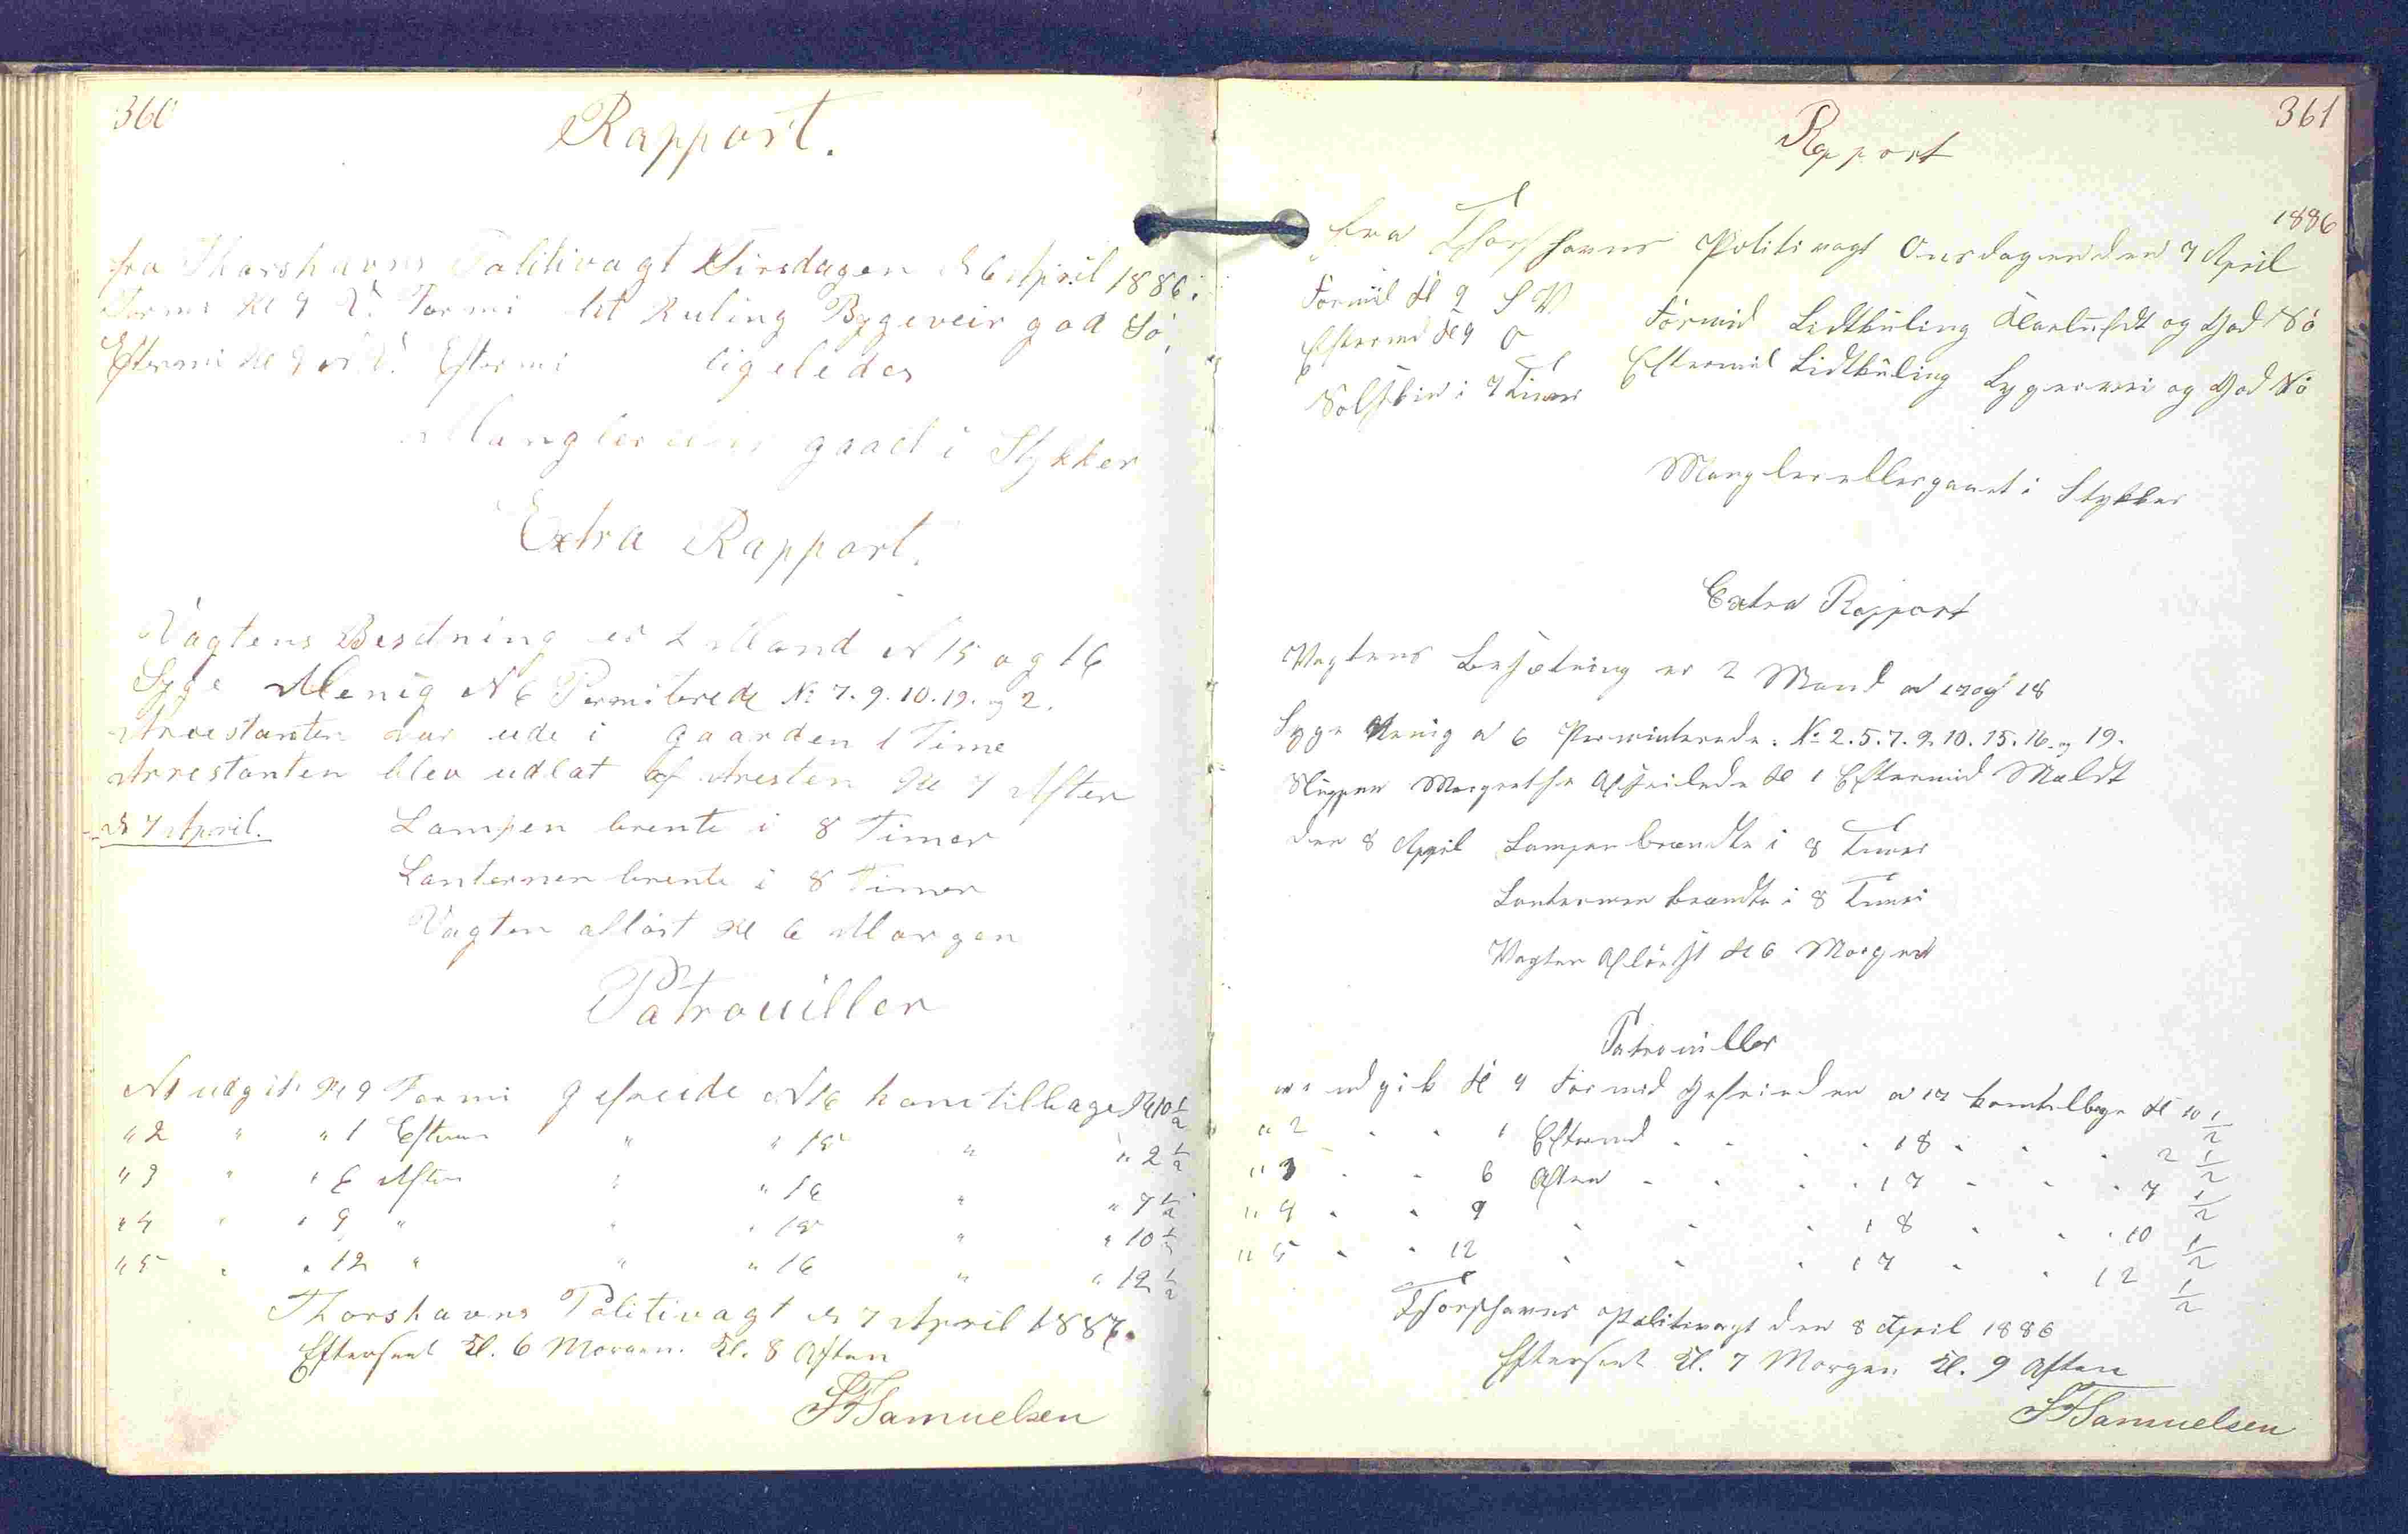 360
Rapport.
fra Thorshavns Politivagt Tirsdagen d 6 April 1886.
Formi Kl 9 V. Formi let Kuling Bygeveir god Sö,
Eftermi Kl 9 N.V. Eftermi ligeledes
Mangler eller gaaet i Stykker
Extra Rapport.
Vagtens Besetning er 2 Mand N 15 og 16
Syge Menig N 6 Permiterede No 7. 9. 10. 19. og 2.
Arrestanten var ude i gaarden 1 Time
Arrestanten blev udlat af Aresten Kl 7 Aften
d 7 April. Lampen brente i 8 Timer
Lanternen brente i 8 Timer
Vagten aflöst Kl 6 Morgen
Patrouiller
N1 udgik Kl 9 Formi gefreide N 16 kom tilbage Kl 10 1/2
" 2 " " 1 Efterm " " 15 " " 2 1/2
" 3 " " 6 Aften " " 16 " " 7 1/2
" 4 " " 9 " " " 15 " " 10 1/2
" 5 " " 12 " " " 16 " " 12 1/2
Thorshavns Politivagt d 7 April 1886.
Efterseet Kl. 6 Morgen. Kl. 8 Aften
Samuelsen
361
Rapport
1886
fra Thorshavns Politivagt Onsdagen den 7 April
Formid Kl 9 S V Formid Lidtkuling Klarluft og God Sö
Eftermid Kl 9 O Eftermid Lidtkuling og God Sö
Solskin i 7 Timer
Mangler eller gaaet i Stykker
Extra Rapport
Vagtens Besætning er 2 Mand N 17 og 18
Syge Menig N 6 Permiterede. No 2. 5. 7. 9. 10. 15. 16. og 19.
Sluppen Margrethe Afseilede Kl 1 Eftermid Mældt
den 8 April Lampen brændte i 8 Timer
Lanternen brændte i 8 Timer
Vagten Aflöst Kl 6 Morgen
Patrouiller
N 1 udgik Kl 9 Formid Gefreiden N 17 kom tilbage Kl 10 1/2
" 2 " " 1 Eftermid " " " 18 " " " 2 1/2
" 3 " " 6 Aften " " " 17 " " " 7 1/2
" 4 " " 9 " " " 18 " " " 10 1/2
" 5 " " 12 " " " 17 " " 12 1/2
Thorshavns Politivagt den 8 April 1886
Efterseet Kl. 7 Morgen Kl. 9 Aften
Samuelsen